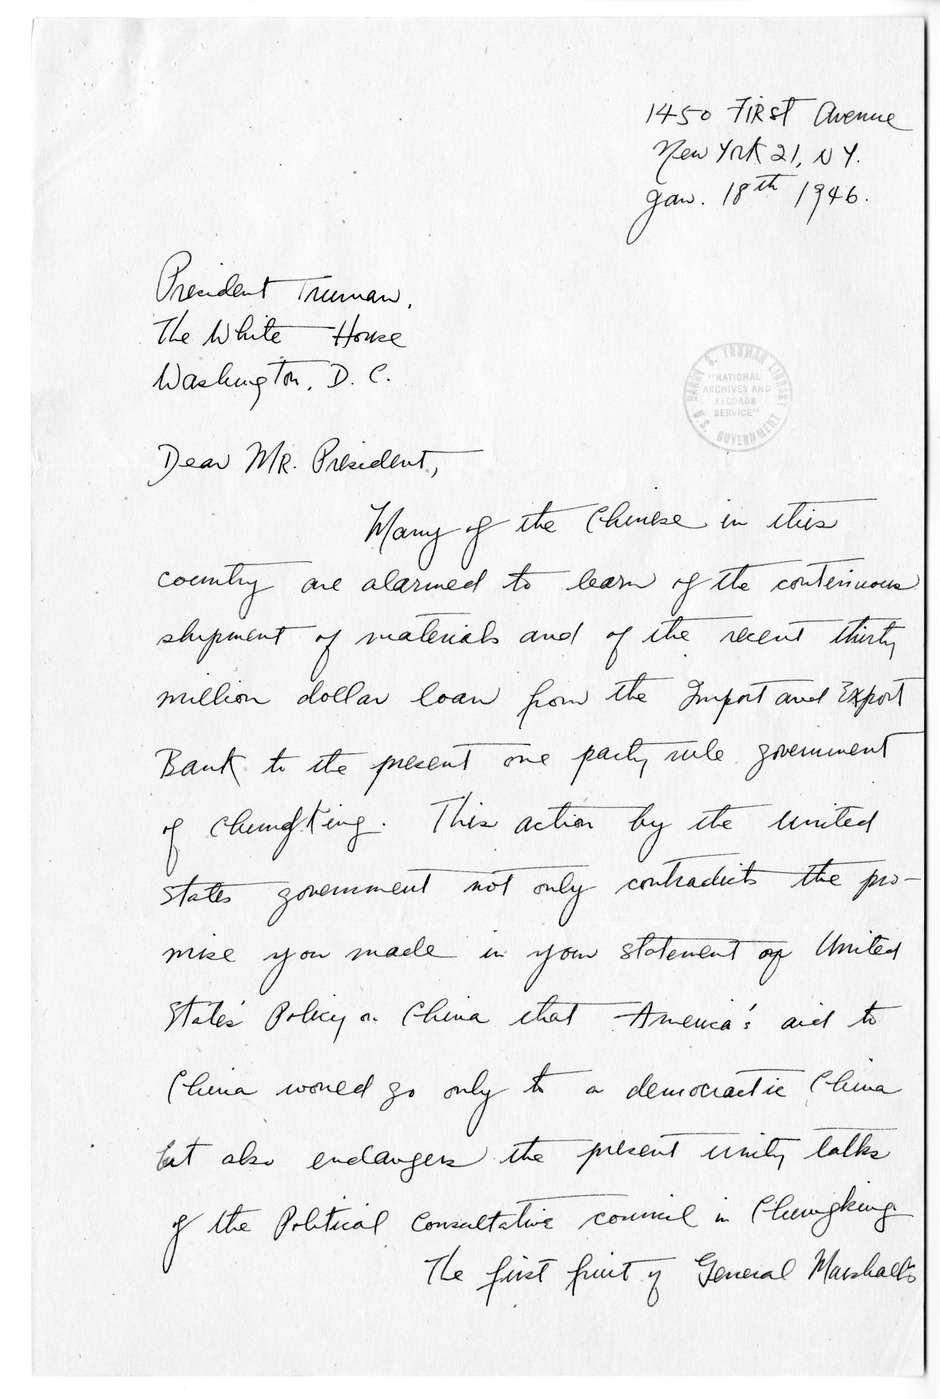 1450 First Avenue
New York 21, N.Y.
Jan. 18th 1946.
President Truman,
The White House
Washington, D. C.
HARRY S. TRUMAN LIBRARY
"NATIONAL
ARCHIVES AND
RECORDS
SERVICE"
U.S. GOVERNMENT
Dear Mr. President,
Many of the Chinese in this
country are alarmed to learn of the continuous
shipment of materials and of the recent thirty
million dollar loan from the Import and Export
Bank to the present one party rule government
of Chungking. This action by the United
States government not only contradicts the pro-
mise you made in your statement of United
State's Policy on China that America's aid to
China would go only to a democractic China
but also endangers the present unity talks
of the Political Consultative council in Chungking
The first fruit of General Marshall's